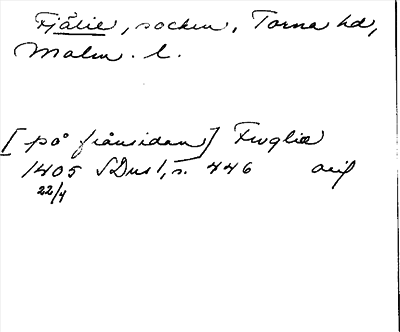 Fjälie, socken, Torna hd,
Malm. l.
[på frånsidan] Fvgliæ
1405 SDns 1, s. 446 avf
22/4